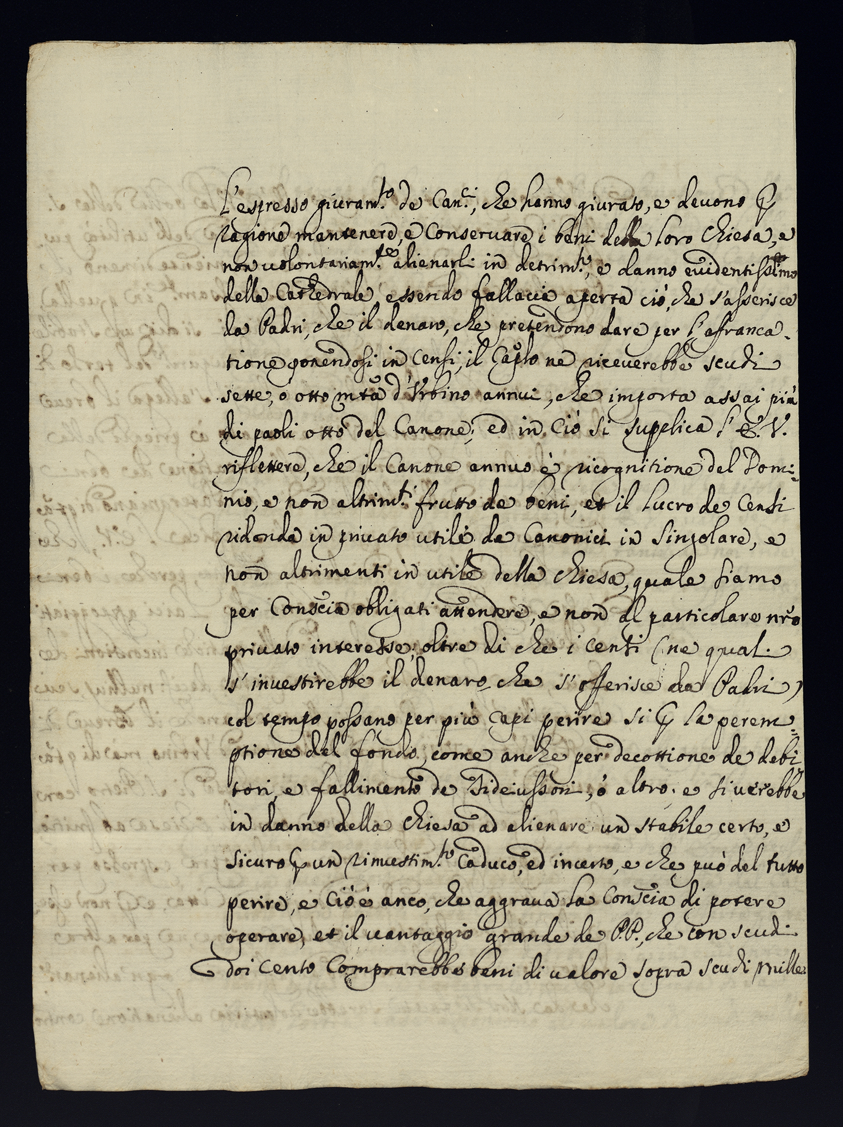 L'espresso giuram.to de Can.ci, che hanno giurato, e devono p
ragione mantenere, e Conservare i beni della loro Chiesa, e
non volontariam.te alienarli in detrim.to, e danno evidentissimo
della Cathedrale, essendo fallacia aperta ciò, che s'asserisce
da Padri, che il denaro, che pretendono dare per l'afranca-
tione ponendosi in Censi, il Caplo ne riceverebbe scudi
sette, o otto mta d'Urbino annui, che importa assai più
di paoli otto del Canone; ed in Ciò si supplica l'E. V.
riflettere, che il Canone annuo è ricognitione del Domi=
nio, e non altrim.ti frutto de beni, et il lucro de Censi
ridonda in privato utile da Canonici in Singolare, e
non altrimenti in utile della Chiesa, quale siamo
per Conscia obligati attendere, e non al particolare nro
privato interesse; oltre di che i Censi (ne quali
s'investirebbe il denaro che s'offerisce da Padri)
col tempo possano per più Capi perire si p la perem=
ptione del fondo, come anche per decottione de debi
tori, e fallimento de Sideiussori, ò altro. e si verebbe
in danno della Chiesa ad alienare un stabile certo, e
sicuro p un rinvestim.to Caduco, ed incerto, e che può del tutto
perire, e Ciò è anco, che aggrava la Conscia di potere
operare, et il vantaggio grande de PP. che con scudi
doi Cento Comprarebbe beni di valore sopra scudi mille